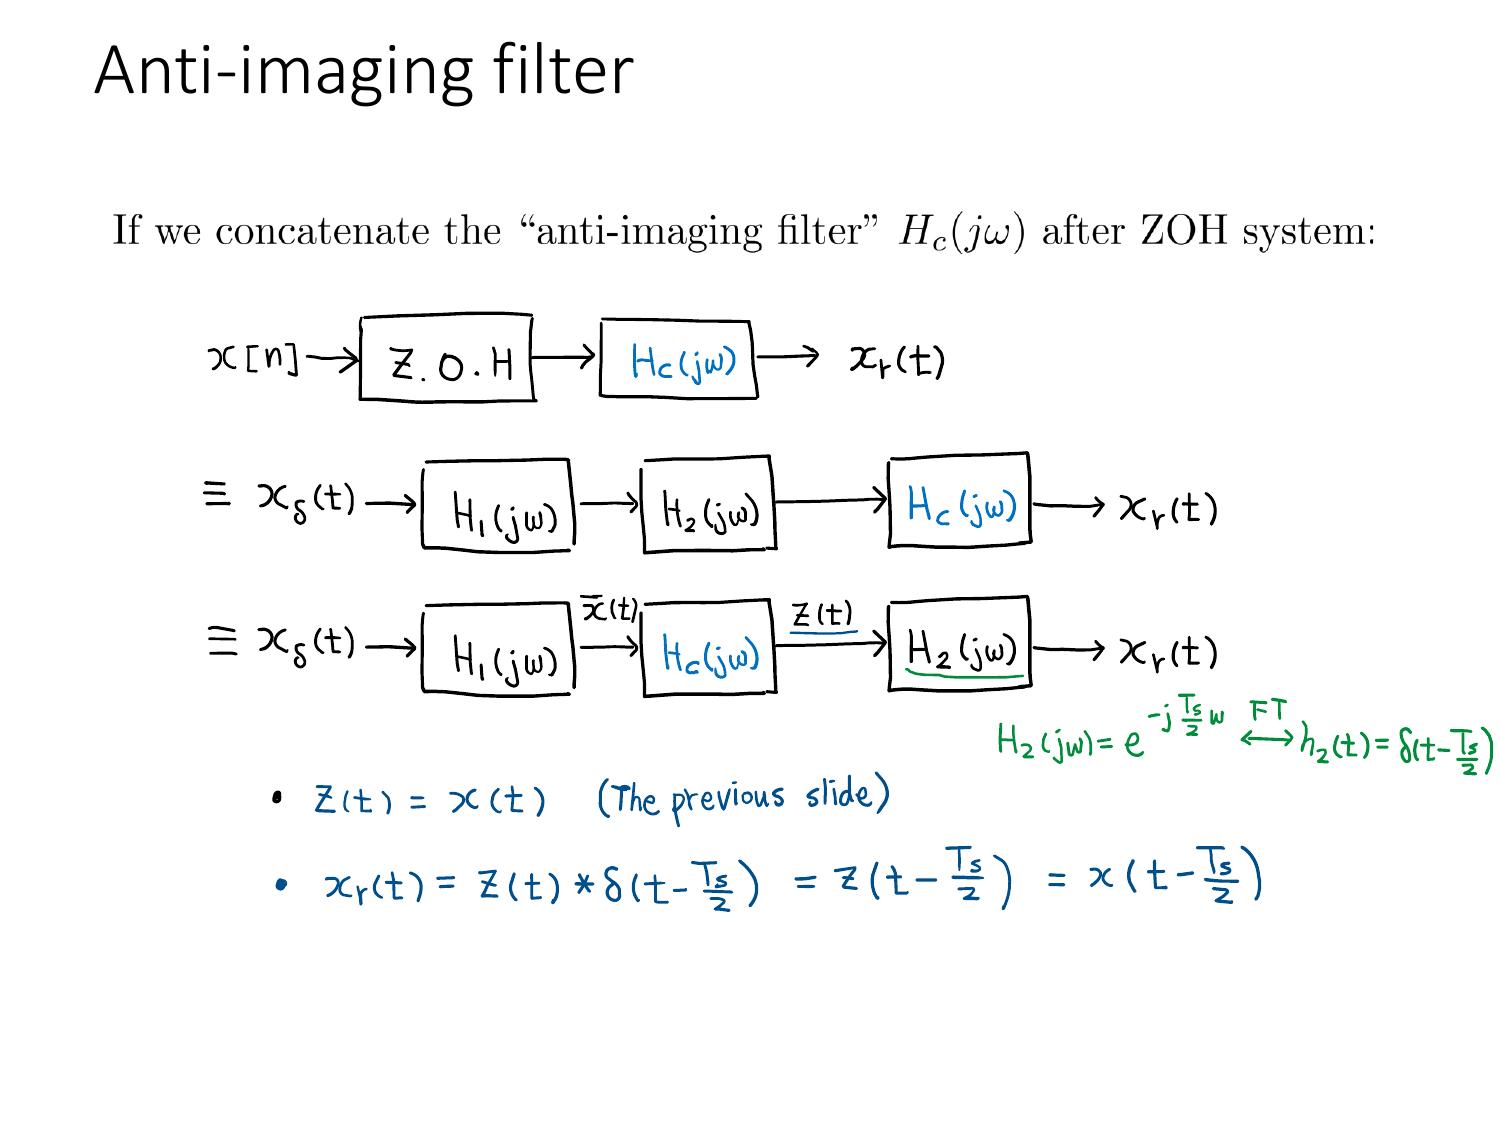 Anti-imaging filter
If we concatenate the “anti-imaging filter” H_c(jω) after ZOH system:
x[n] → Z.O.H → H_c(jω) → x_r(t)
≡ x_δ(t) → H_1(jω) → H_2(jω) → H_c(jω) → x_r(t)
≡ x_δ(t) → H_1(jω) x̄(t) → H_c(jω) z(t) → H_2(jω) → x_r(t)
H_2(jω) = e^{-j T_s/2 ω} ⟷^{FT} h_2(t) = δ(t - T_s/2)
• z(t) = x(t) (The previous slide)
• x_r(t) = z(t) * δ(t - T_s/2) = z(t - T_s/2) = x(t - T_s/2)